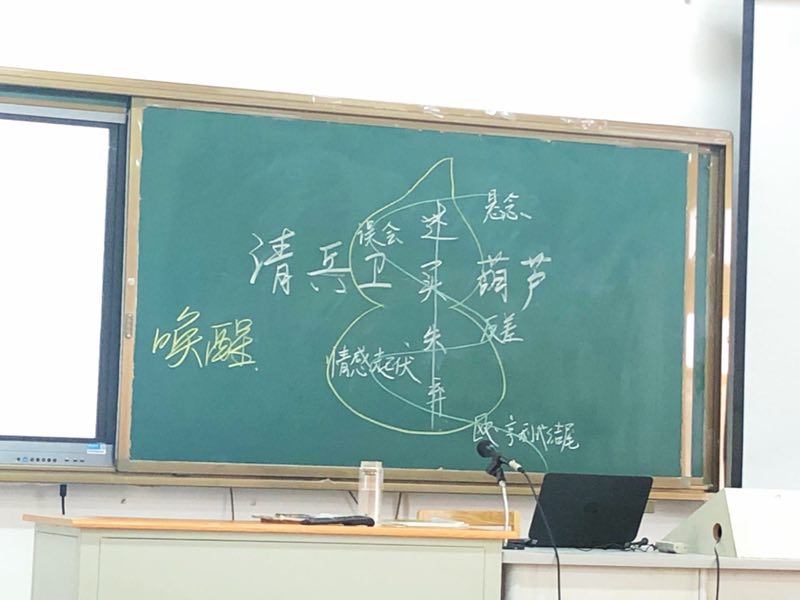 悬念
误会
迷
清兵卫买葫芦
唤醒
反差
失
情感起伏
弃
欧·亨利式结尾